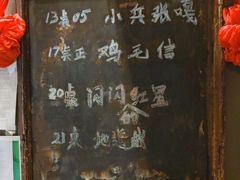 13桌05 小兵张嘎
17桌正 鸡毛信
20桌 闪闪红星
21桌 地道战